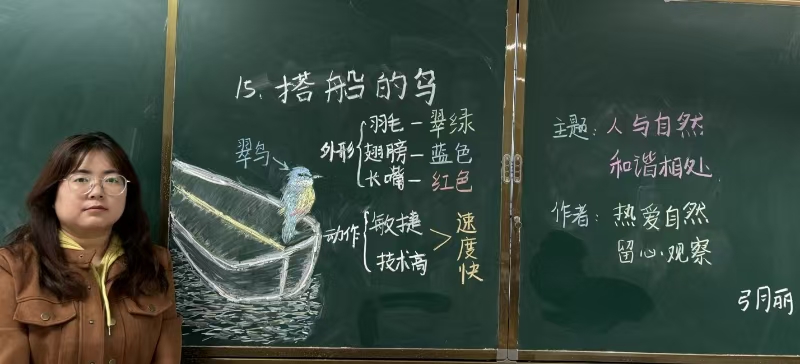 15. 搭船的鸟
翠鸟
外形
羽毛—翠绿
翅膀—蓝色
长嘴—红色
动作
敏捷
技术高
速度快
主题: 人与自然
和谐相处
作者: 热爱自然
留心观察
弓月丽